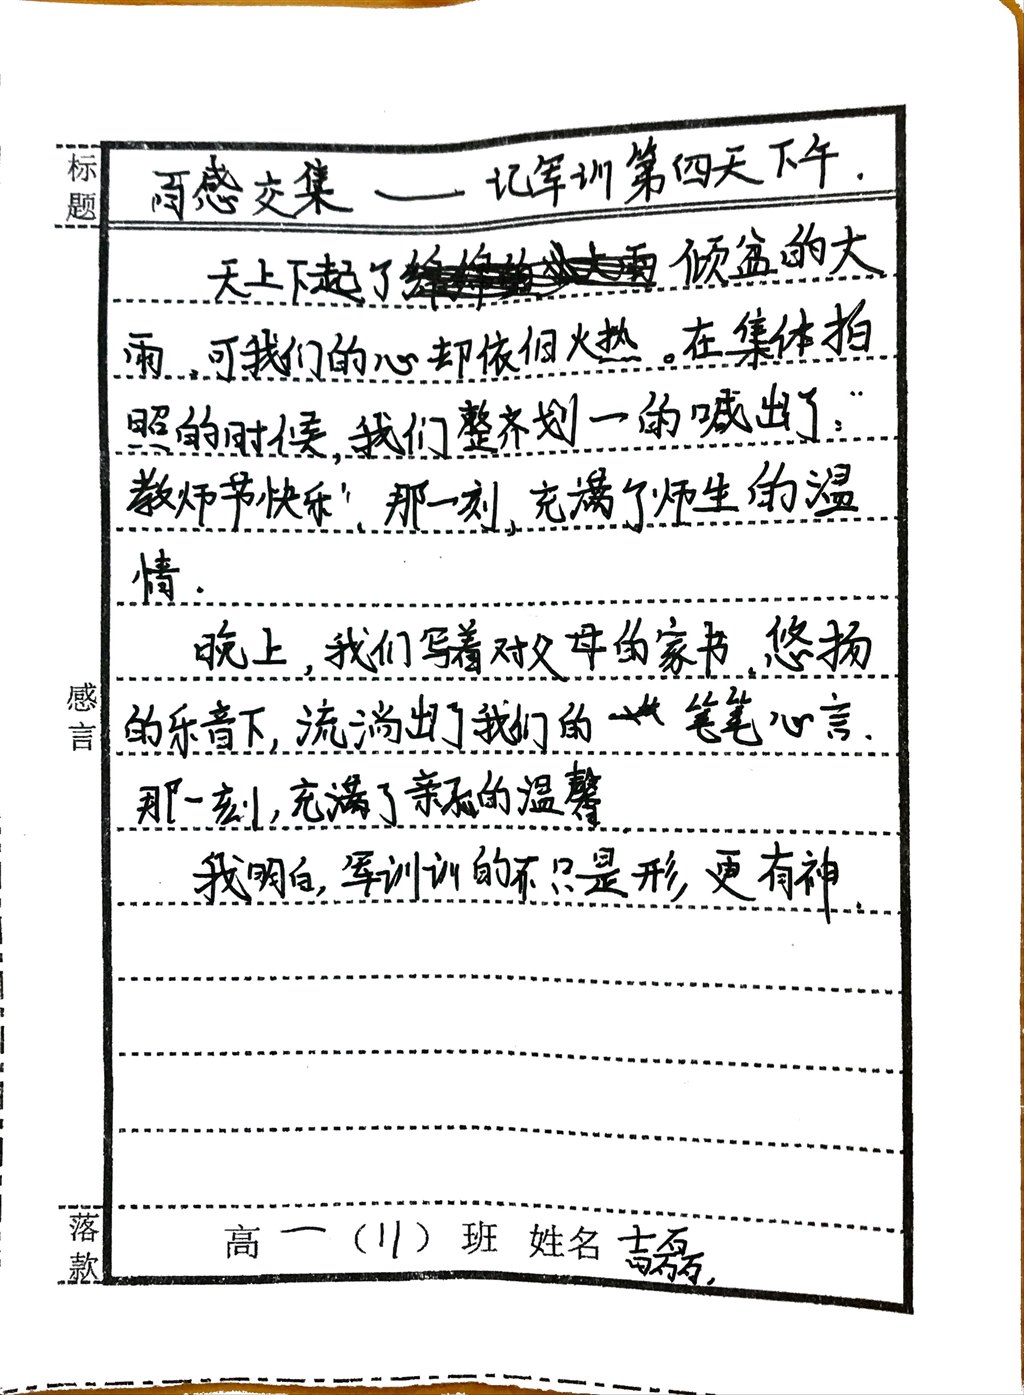 标题
雨感交集 —— 记军训第四天下午.
天上下起了 倾盆的大
雨,可我们的心却依旧火热。在集体拍
照的时候,我们整齐划一的喊出了:“
教师节快乐”.那一刻,充满了师生的温
情.
晚上,我们写着对父母的家书.悠扬
的乐音下,流淌出了我们的 笔笔心言.
那一刻,充满了亲子的温馨
我明白,军训训的不只是形,更有神.
感言
落款
高一(11)班 姓名 磊.